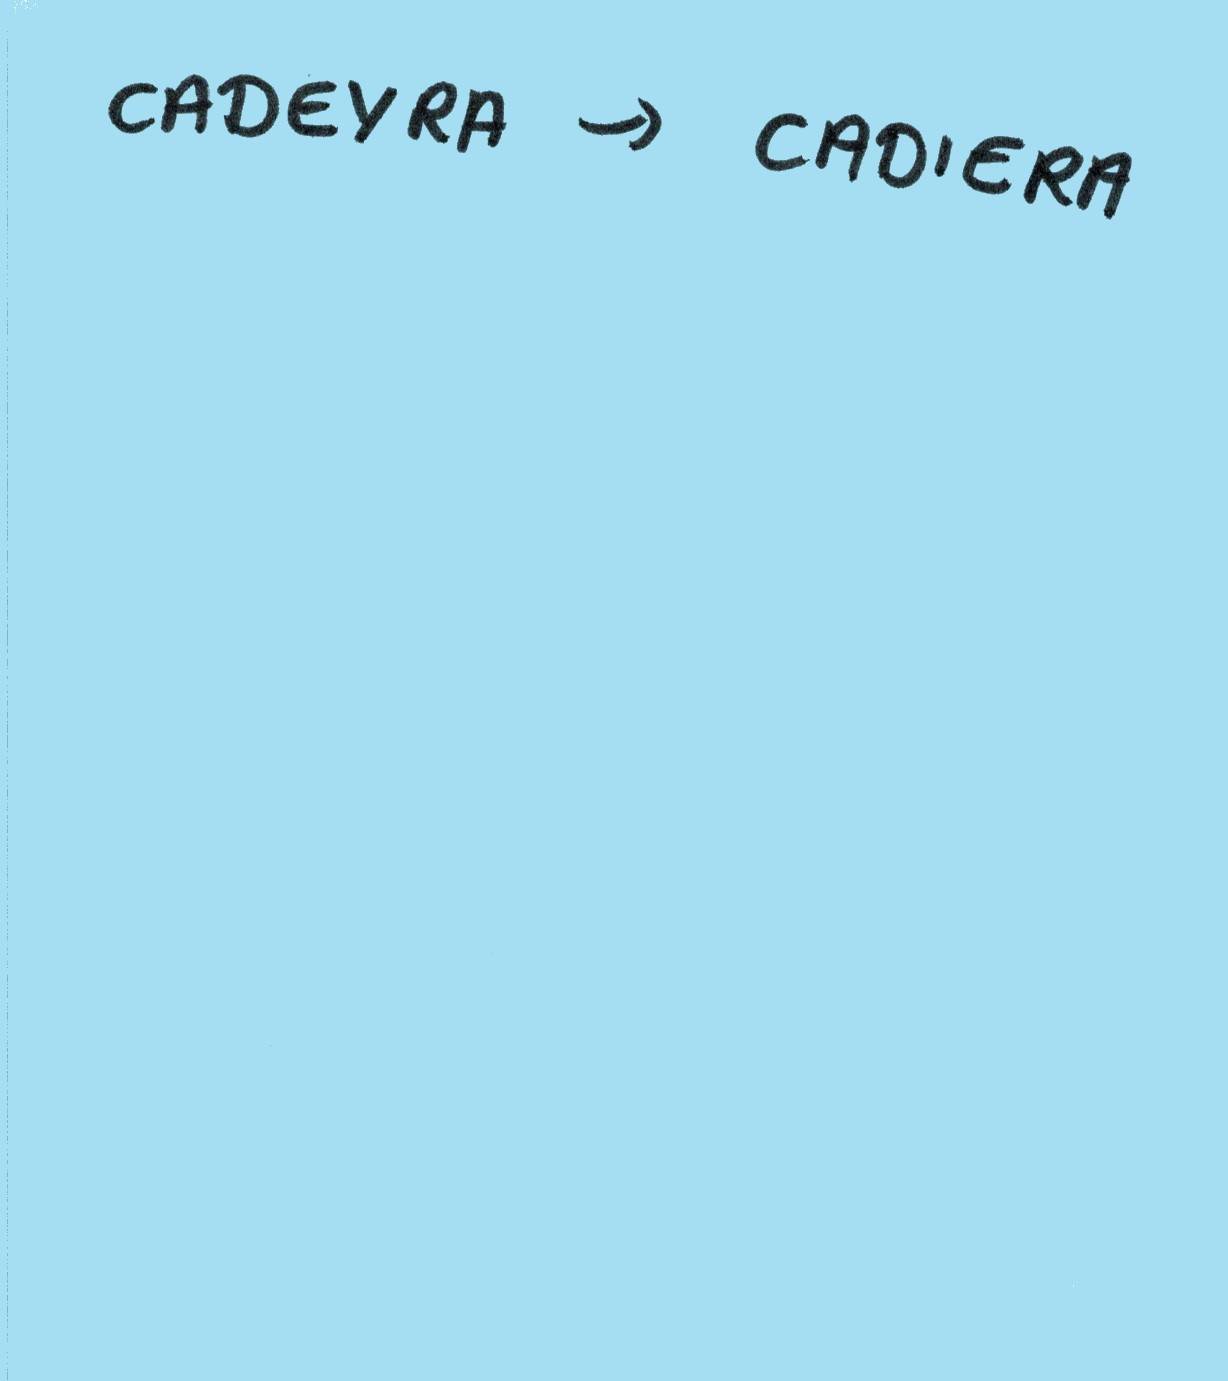 CADEYRA → CADIERA